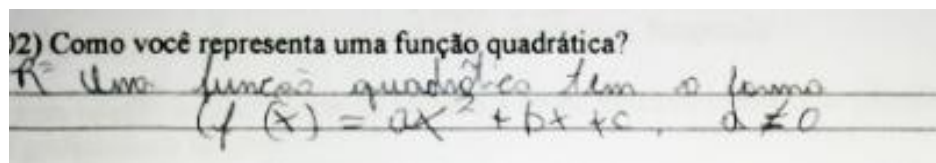 02) Como você representa uma função quadrática?
R= Uma função quadrática tem a forma
(f (x) = ax² + bx + c, a ≠ 0